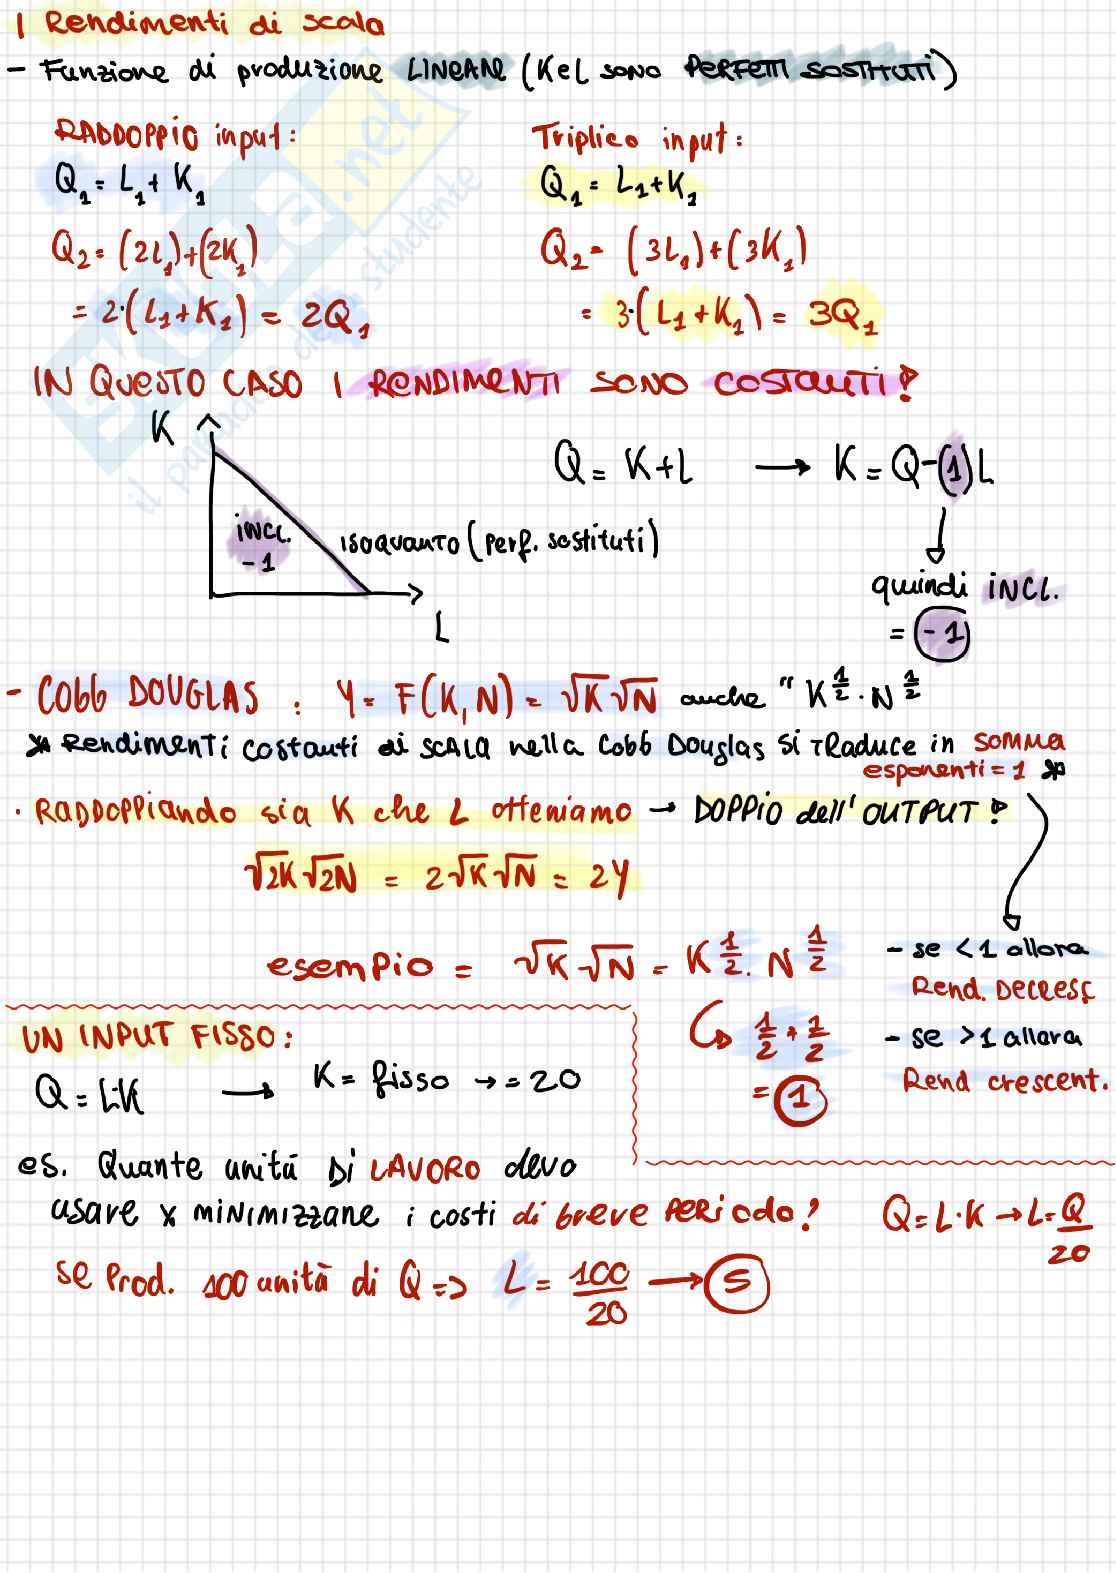 I Rendimenti di scala
- Funzione di produzione LINEARE (K e L sono PERFETTI SOSTITUTI)
RADDOPPIO input:
Q₁ = L₁ + K₁
Q₂ = (2L₁)+(2K₁)
= 2·(L₁+K₁) = 2Q₁
Triplico input:
Q₁ = L₁+K₁
Q₂ = (3L₁)+(3K₁)
= 3·(L₁+K₁) = 3Q₁
IN QUESTO CASO I RENDIMENTI SONO COSTANTI!
K
INCL.
-1
isoquanto (perf. sostituti)
L
Q = K+L → K = Q-(1)L
quindi INCL.
= -1
- COBB DOUGLAS : Y = F(K,N) = √K √N anche " K^½ · N^½
* Rendimenti costanti di SCALA nella Cobb Douglas si traduce in SOMMA
esponenti = 1 *
· RADDOPPiando sia K che L otteniamo → DOPPIO dell'OUTPUT!
√2K √2N = 2√K √N = 2Y
esempio = √K √N = K^½ · N^½
½ + ½
= 1
- se < 1 allora
Rend. DECRESC
- se > 1 allora
Rend crescent.
UN INPUT FISSO:
Q = L·K → K = fisso → = 20
es. Quante unità DI LAVORO devo
usare x MINIMIZZARE i costi di breve PERIodo?
Q = L·K → L = Q/20
se Prod. 100 unità di Q => L = 100/20 → 5
SKUOLA.net
il paradiso dello studente